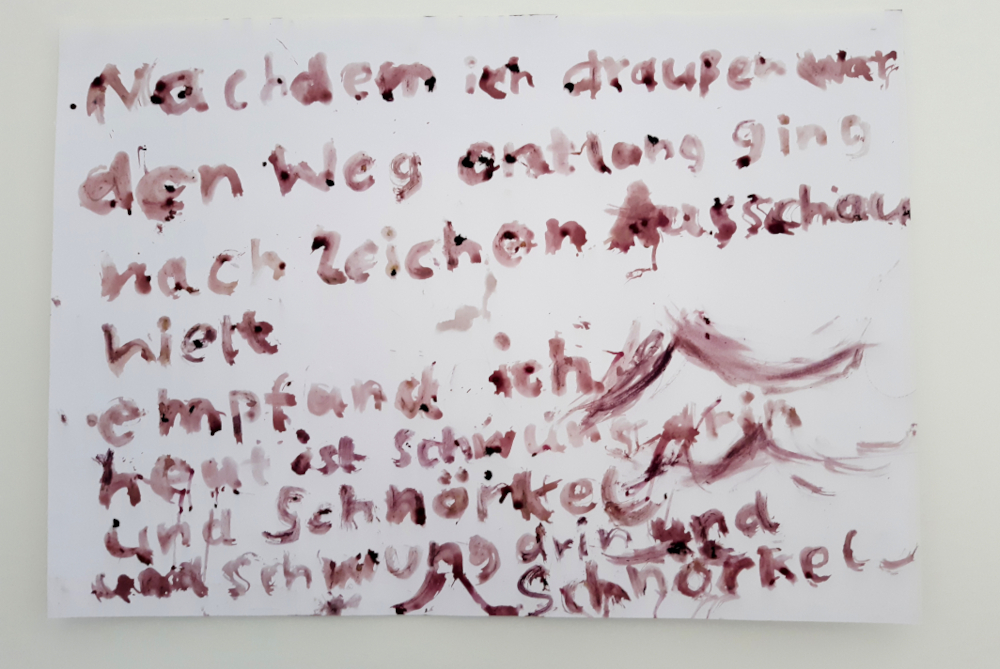 Nachdem ich draußen war
den Weg entlang ging
nach Zeichen Ausschau
hielt
empfand ich
heut ist schwung drin
und Schnörkel
und schwung drin und
Schnörkel